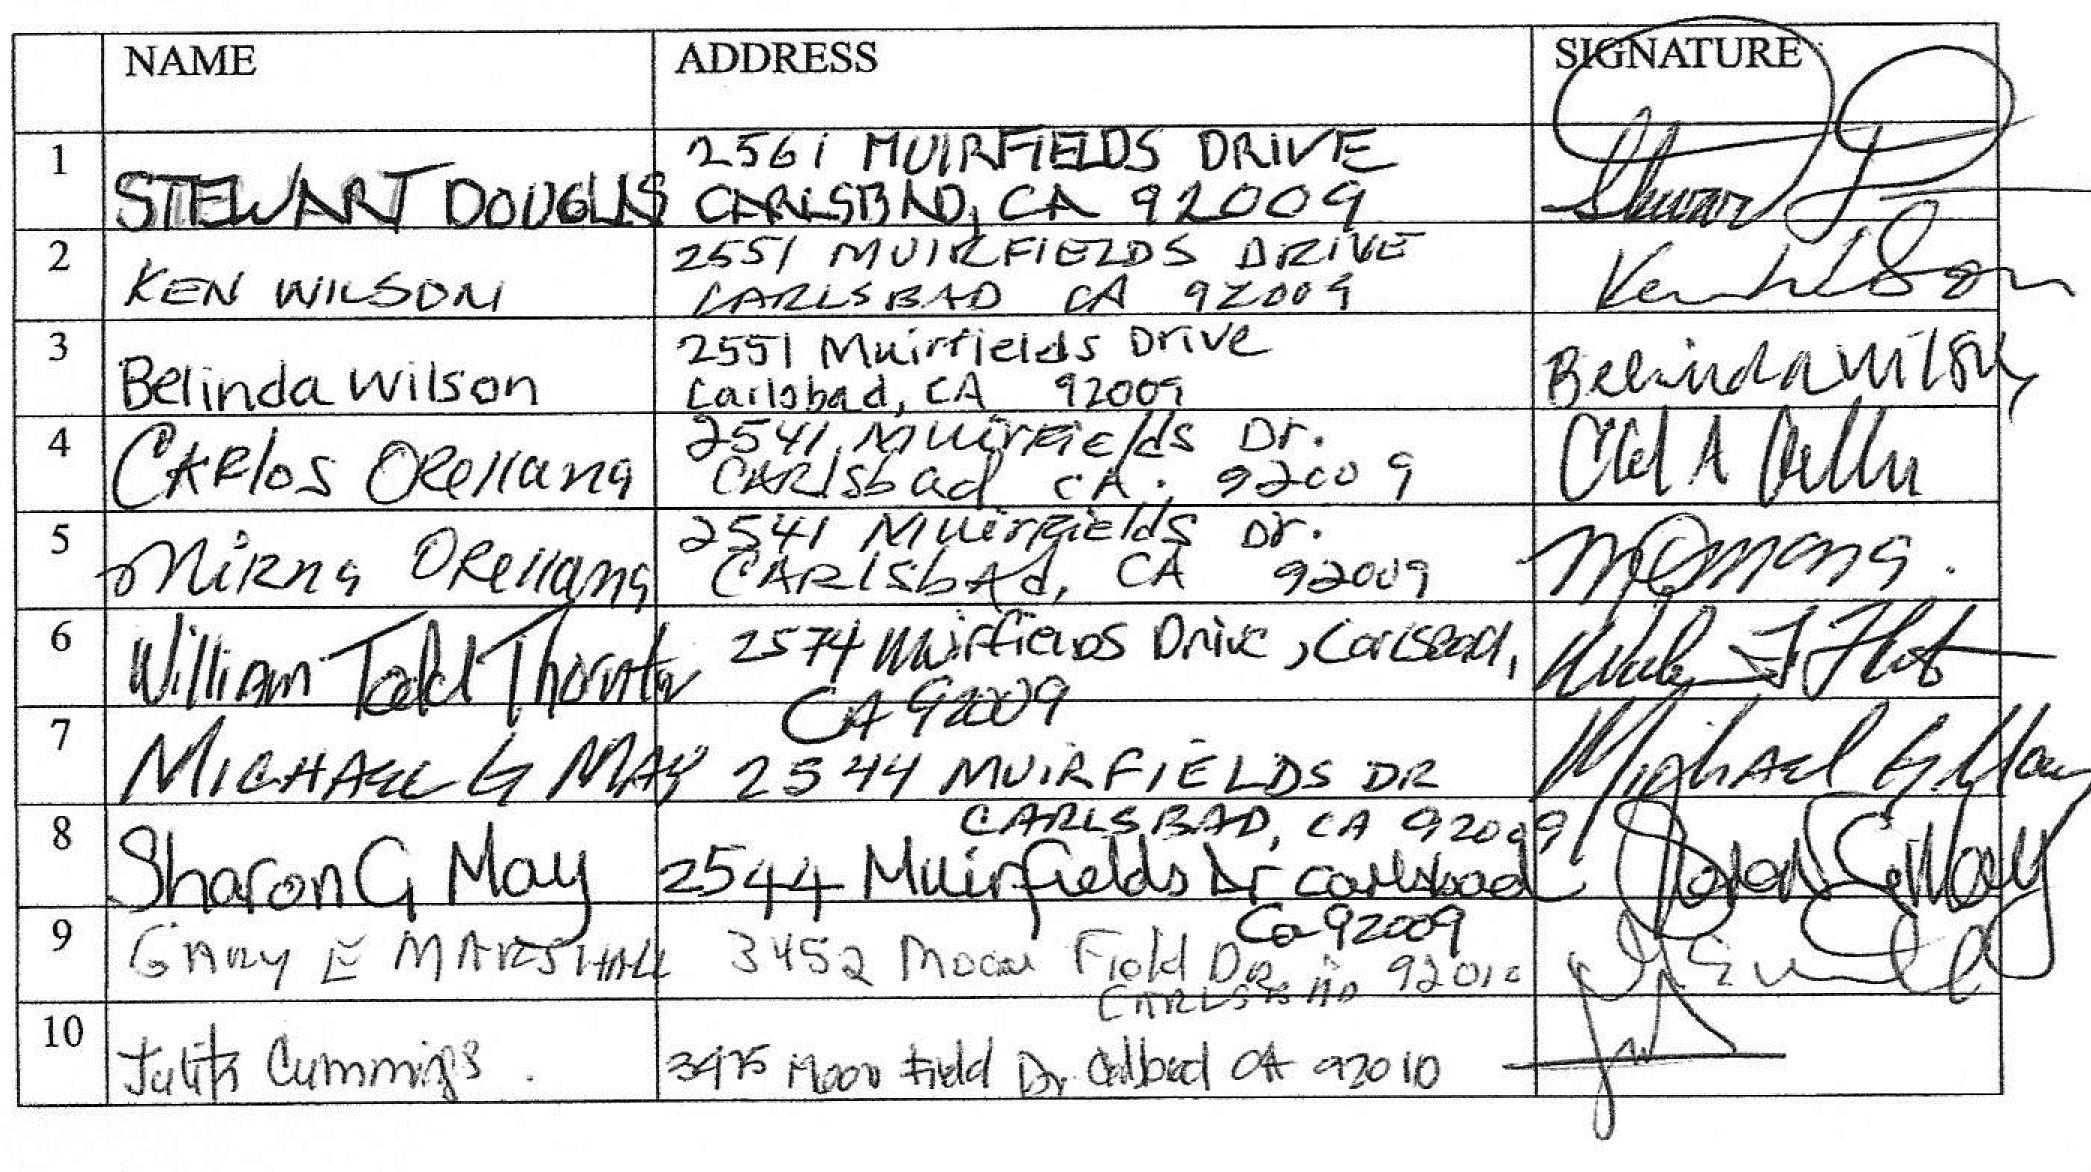 NAME ADDRESS SIGNATURE
1 STEWART DOUGLAS 2561 MUIRFIELDS DRIVE
CARLSBAD, CA 92009
2 KEN WILSON 2551 MUIRFIELDS DRIVE
CARLSBAD CA 92009 Ken Wilson
3 Belinda Wilson 2551 Muirfields Drive
Carlsbad, CA 92009 Belinda Wilson
4 CARlos ORellana 2541 Muirfields Dr.
CARlsbad CA. 92009
5 MiRna ORellana 2541 Muirfields Dr.
CARlsbAd, CA 92009
6 William Todd 2574 Muirfields Drive, Carlsbad,
CA 92009
7 MICHAEL G MAY 2544 MUIRFIELDS DR Michael G May
CARLSBAD, CA 92009
8 Sharon G May 2544 Muirfields Dr Carlsbad Sharon G May
Ca 92009
9 GARY E MARSHALL 3452 Moon Field DR 92010
CARLSBAD
10 Cummings 3475 Moon Field Dr CA 92010